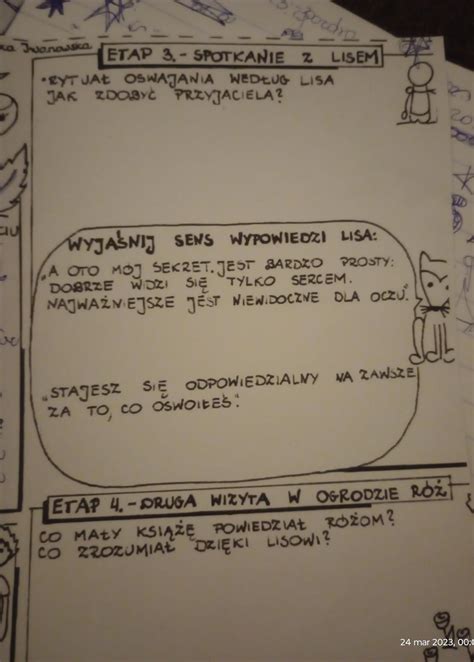 ka Iwanowska
ETAP 3.- SPOTKANIE Z LISEM
• RYTUAŁ OSWAJANIA WEDŁUG LISA
JAK ZDOBYĆ PRZYJACIELA?
WYJAŚNIJ SENS WYPOWIEDZI LISA:
"A OTO MÓJ SEKRET. JEST BARDZO PROSTY:
DOBRZE WIDZI SIĘ TYLKO SERCEM.
NAJWAŻNIEJSZE JEST NIEWIDOCZNE DLA OCZU."
"STAJESZ SIĘ ODPOWIEDZIALNY NA ZAWSZE
ZA TO, CO OSWOIŁEŚ".
ETAP 4.- DRUGA WIZYTA W OGRODZIE RÓŻ
CO MAŁY KSIĄŻĘ POWIEDZIAŁ RÓŻOM?
CO ZROZUMIAŁ DZIĘKI LISOWI?
24 mar 2023, 00: